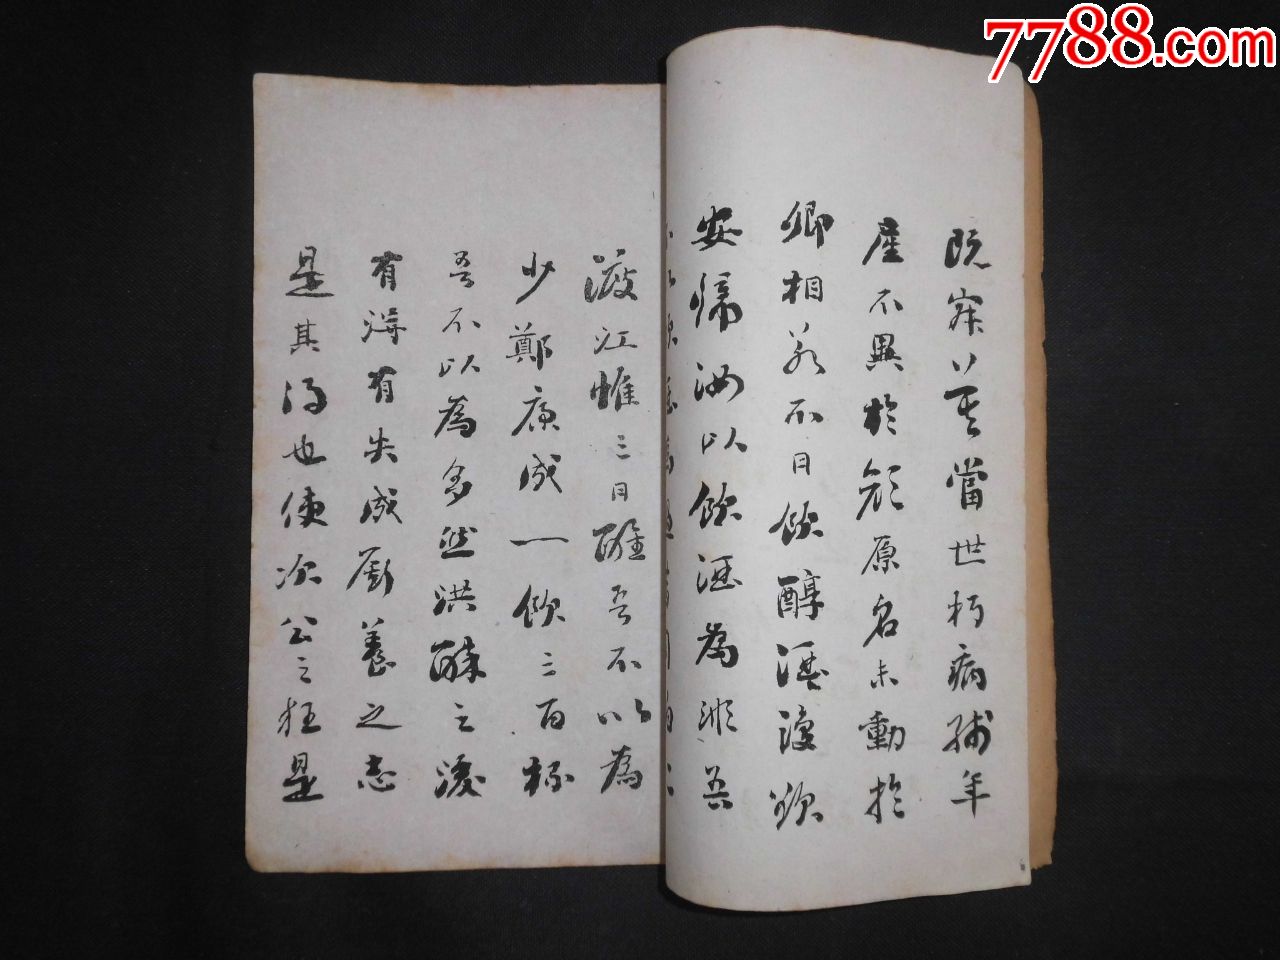 7788.com
既寂莫當世朽病殘年
產不異於顏原名未動於
卿相若不日飲醇酒復欲
安歸汝以飲酒為非吾
渡江惟三日醒吾不以為
少鄭康成一飲三百杯
吾不以為多然洪醉之後
有得有失成厮養之志
是其得也使次公之狂是